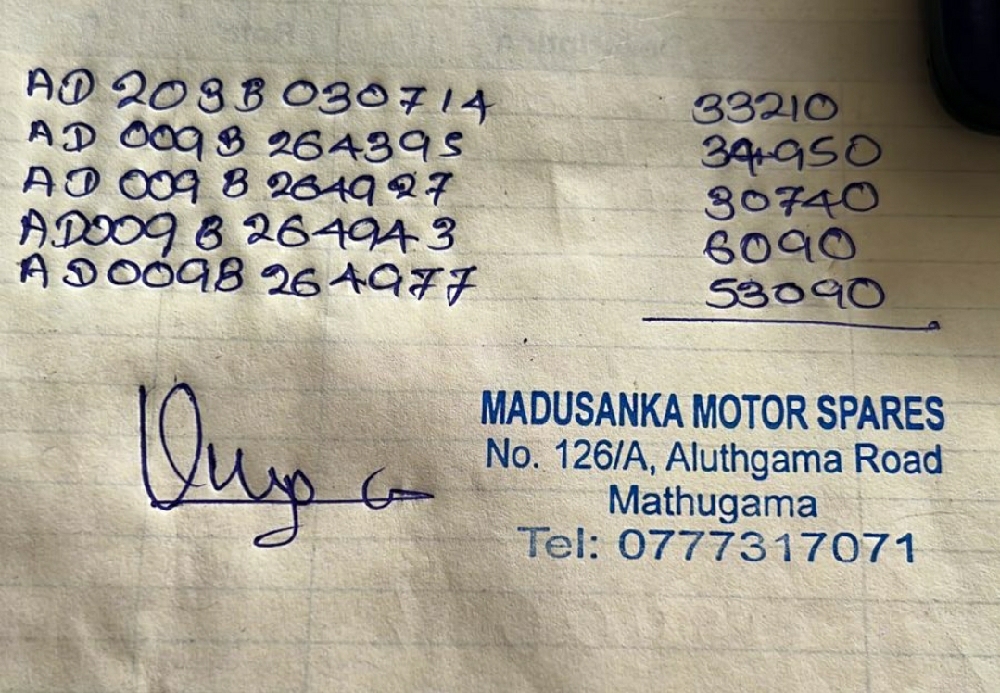 AD 203B 030714 33210
AD 009B 264395 34950
AD 009B 264927 30740
AD009B 264943 6090
AD009B 264977 53090
MADUSANKA MOTOR SPARES
No. 126/A, Aluthgama Road
Mathugama
Tel: 0777317071